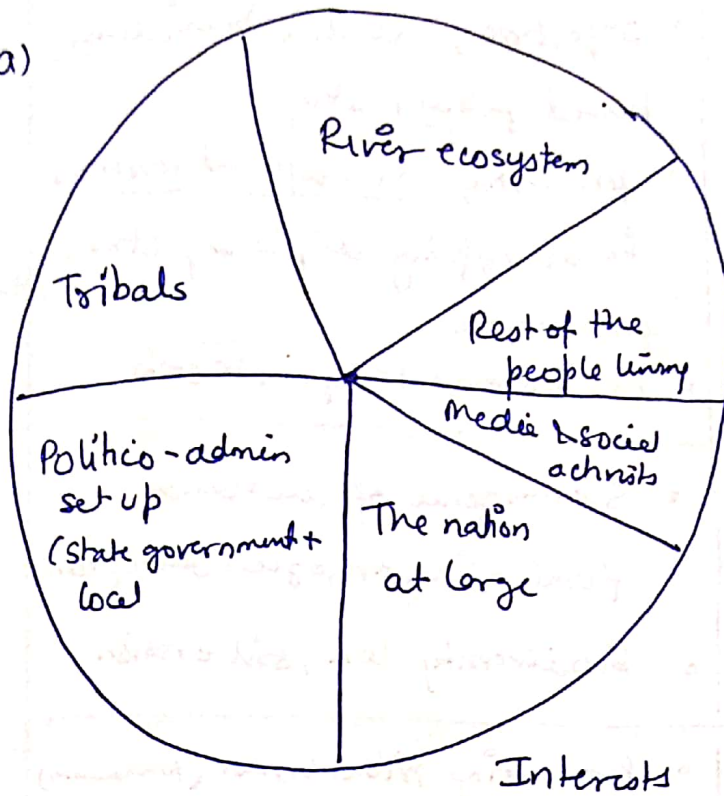 a)
River ecosystem
Tribals
Rest of the
people living
Media & social
activists
Politico-admin
set up
(state government +
local
The nation
at large
Interests